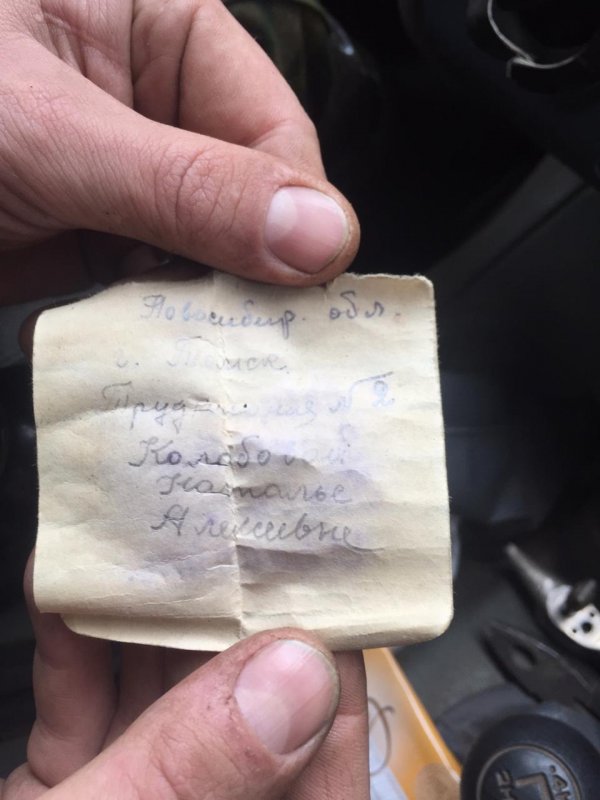 Новосибир. обл.
г. Томск.
№ 2
Колабовой
Наталье
Алексивне